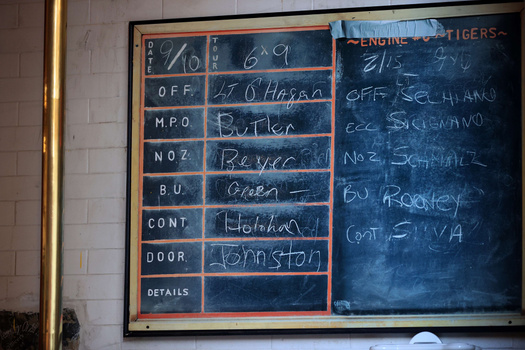 DATE 9/10 TOUR 6x9
OFF. LT O'Hagan
M.P.O. Butler
NOZ. Beyer
B.U. Green —
CONT Holohan
DOOR. Johnston
DETAILS
~ENGINE TIGERS~
2/15
OFF
ECC
NOZ SCHMALZ
BU ROONEY
CONT SILVIA